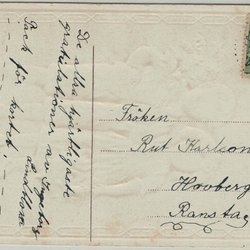 De allra hjärtligaste
gratulationer av Ingeborg
Lindblom
Tack för kortet!
Fröken
Rut Karlson
Hovberg
Ransta